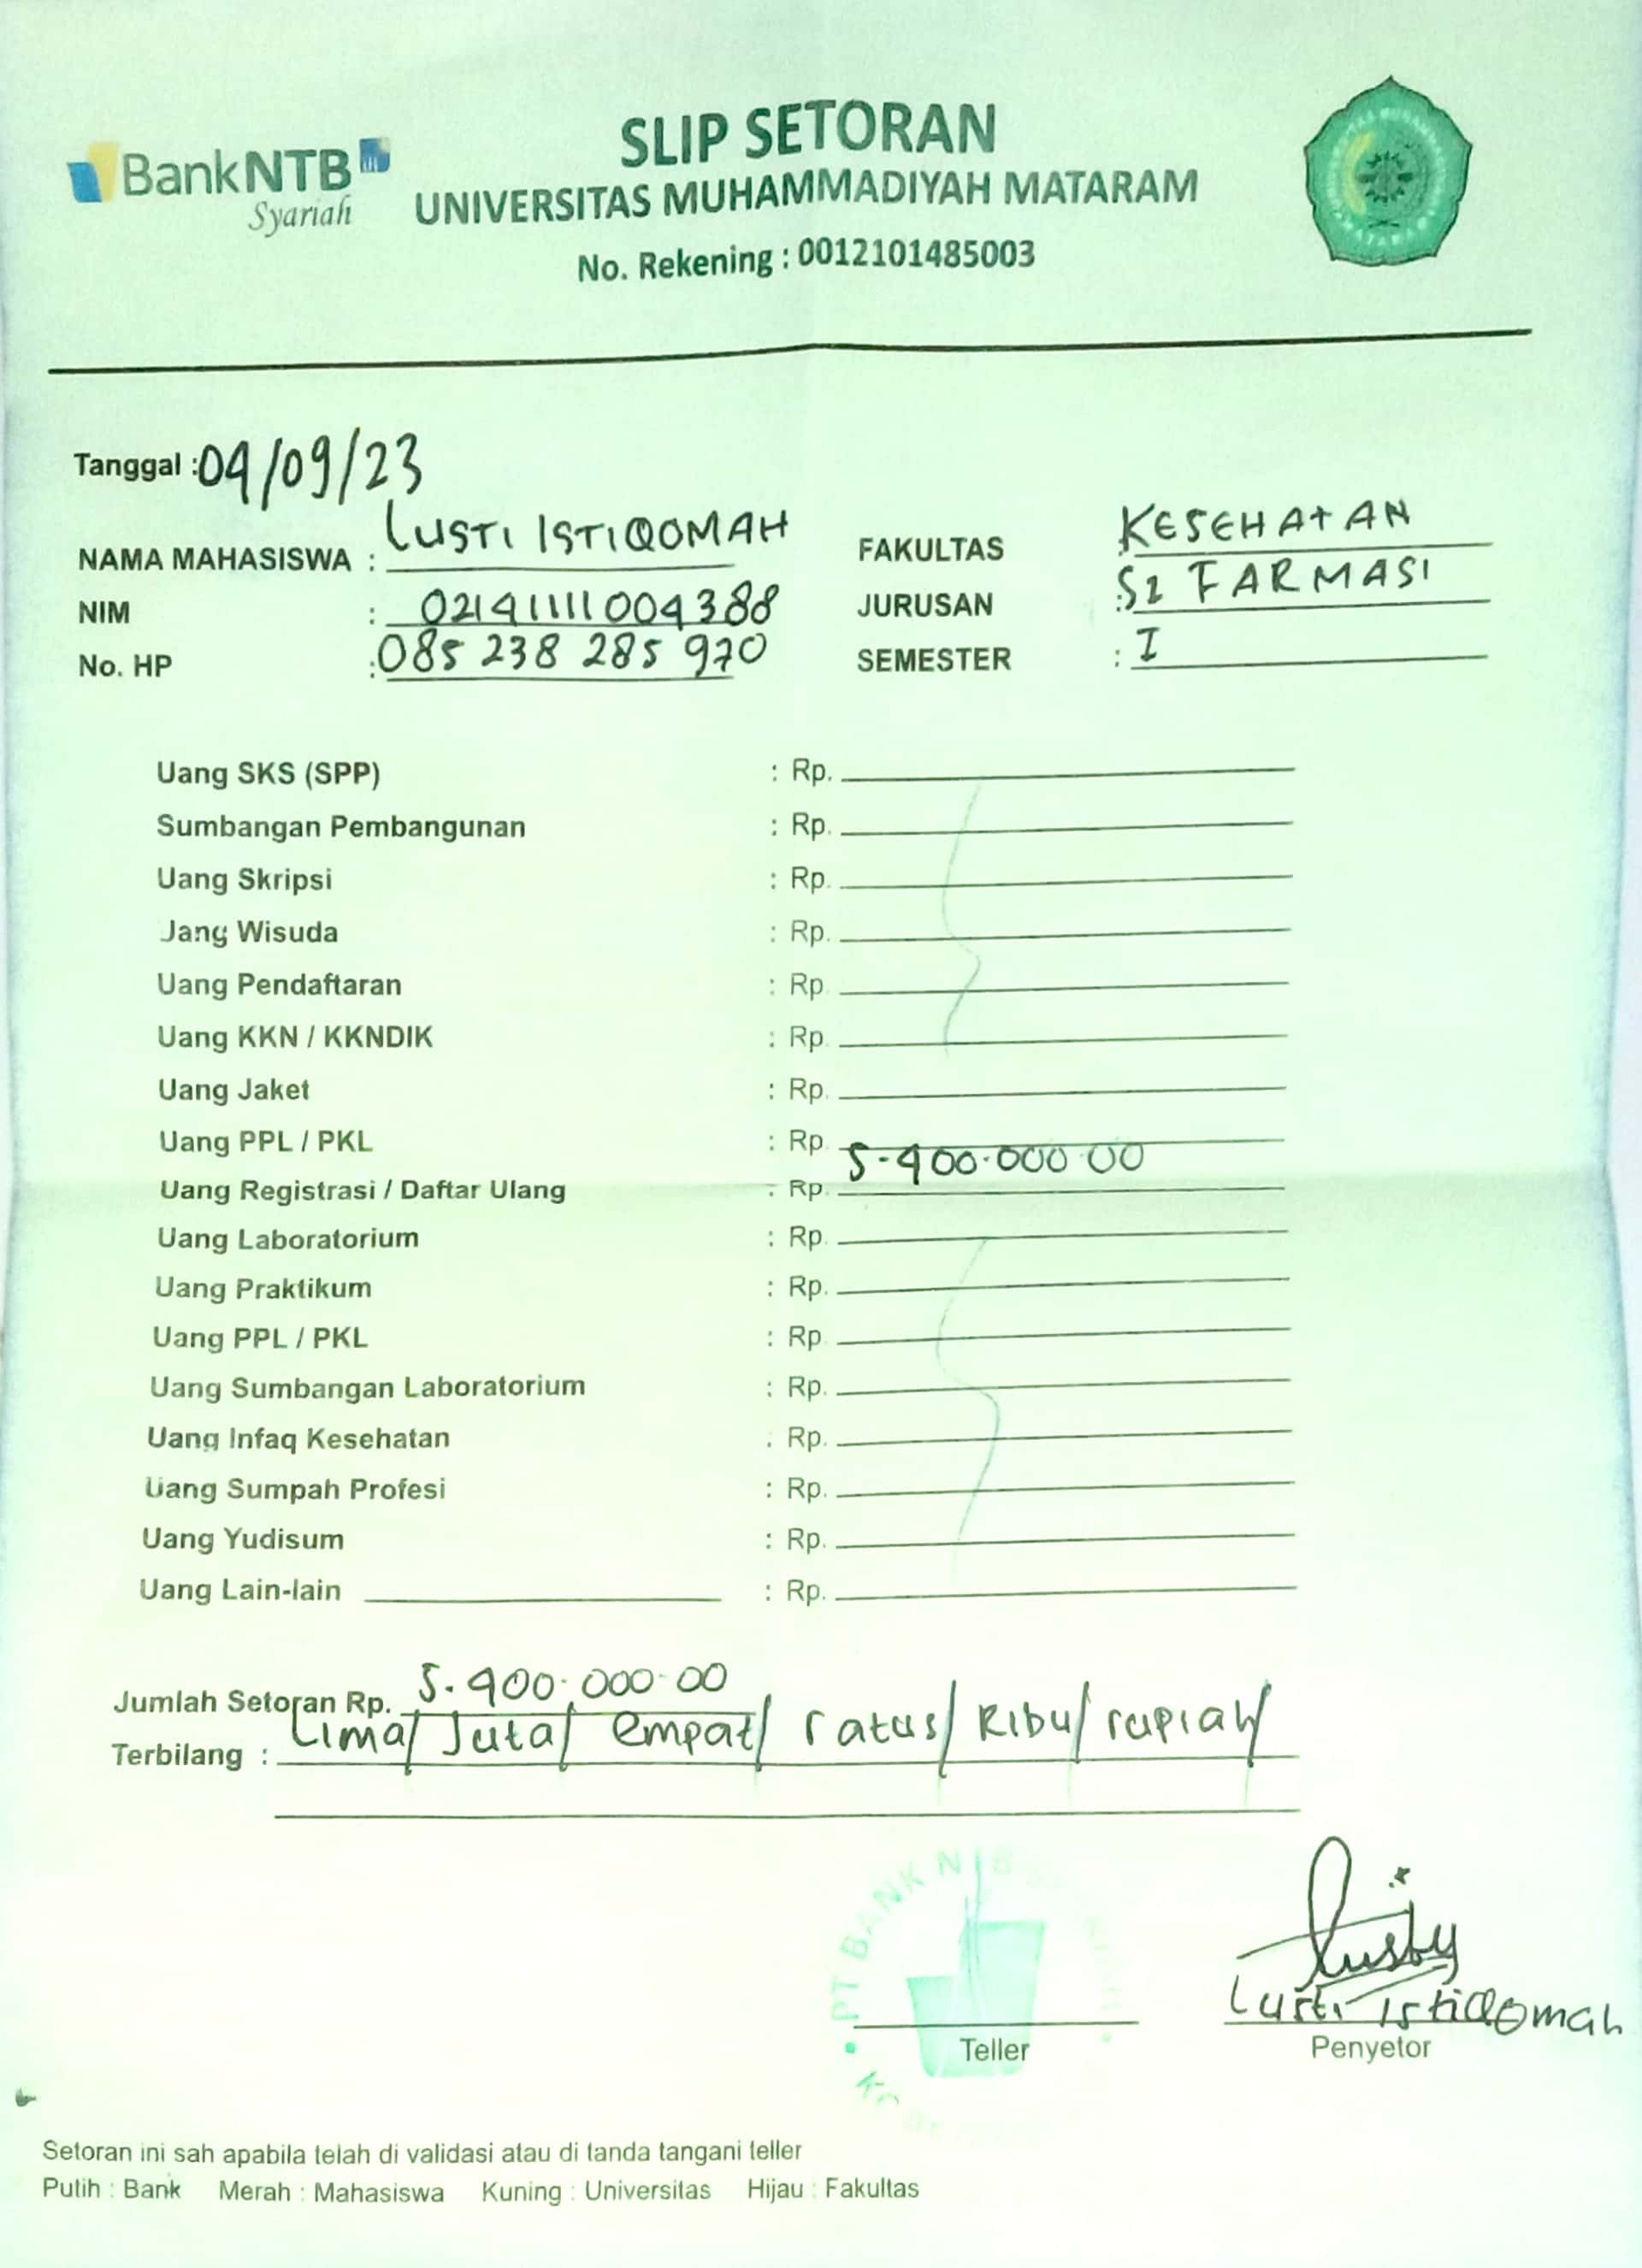 BankNTB
Syariah
SLIP SETORAN
UNIVERSITAS MUHAMMADIYAH MATARAM
No. Rekening : 0012101485003
Tanggal : 04/09/23
NAMA MAHASISWA : LUSTI ISTIQOMAH
NIM : 021411111004388
No. HP : 085 238 285 970
FAKULTAS : KESEHATAN
JURUSAN : S1 FARMASI
SEMESTER : I
Uang SKS (SPP) : Rp.
Sumbangan Pembangunan : Rp.
Uang Skripsi : Rp.
Jang Wisuda : Rp.
Uang Pendaftaran : Rp
Uang KKN / KKNDIK : Rp.
Uang Jaket : Rp.
Uang PPL / PKL : Rp.
Uang Registrasi / Daftar Ulang : Rp. 5.400.000.00
Uang Laboratorium : Rp.
Uang Praktikum : Rp.
Uang PPL / PKL : Rp.
Uang Sumbangan Laboratorium : Rp.
Uang Infaq Kesehatan : Rp.
Uang Sumpah Profesi : Rp.
Uang Yudisum : Rp.
Uang Lain-lain : Rp.
Jumlah Setoran Rp. 5.400.000.00
Terbilang : Lima/ Juta/ empat/ ratus/ Ribu/ rupiah/
PT BANK NTB
Lusti Istiqomah
Teller
Penyetor
Setoran ini sah apabila telah di validasi atau di tanda tangani teller
Putih : Bank Merah : Mahasiswa Kuning : Universitas Hijau : Fakultas